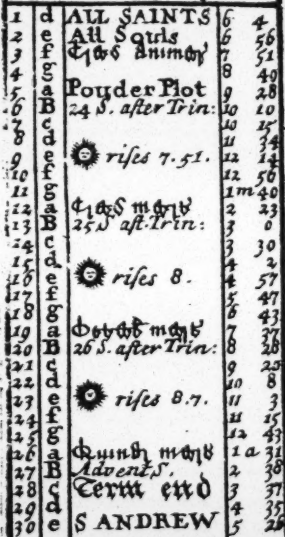 1 d ALL SAINTS 6 4
2 e All Souls 6 56
3 f 7 51
4 g 8 40
5 a Powder Plot 9 28
6 B 24 S. after Trin: 10 10
7 c 10 15
8 d 11 34
9 e rises 7.51. 12 14
10 f 12 56
11 g 1 m 40
12 a 2 23
13 B 25 S aft. Trin: 3 0
14 c 3 30
15 d 4 2
16 e rises 8. 4 57
17 f 5 47
18 g 6 43
19 a 7 37
20 B 26 S. after Trin: 8 28
21 c 9 25
22 d 10 8
23 e rises 8.7. 11 3
24 f 11 15
25 g 12 43
26 a 1 a 31
27 B Advent S. 2 38
28 c Term end 3 37
29 d 4 35
30 e S ANDREW 5 26